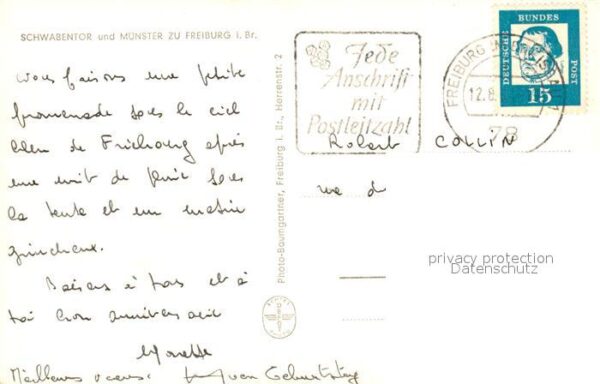 SCHWABENTOR und MÜNSTER ZU FREIBURG i. Br.
Jede
Anschrift
mit
Postleitzahl
FREIBURG
12.8.
78
DEUTSCHE BUNDES POST
15
nous faisons une petite
promenade sous le ciel
bleu de Fribourg après
une nuit de pluie sous
la tente et un matin
grincheux.
Baisers à tous et à
toi bon anniversaire
Meilleurs vœux.
zum Geburtstag
Robert COLLIN
rue d
Photo-Baumgartner, Freiburg i. Br., Herrenstr. 2
privacy protection
Datenschutz